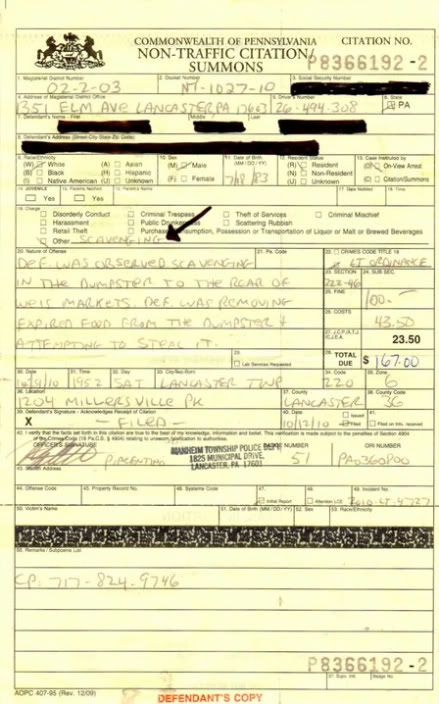 COMMONWEALTH OF PENNSYLVANIA
NON-TRAFFIC CITATION/
SUMMONS
CITATION NO.
P8366192-2
1. Magisterial District Number
02-2-03
2. Docket Number
NT-1027-10
3. Social Security Number
4. Address of Magisterial District Office
1351 ELM AVE LANCASTER PA 17603
5. Driver's Number
26-494-308
6. State
PA
7. Defendant's Name - First
Middle
Last
8. Defendant's Address (Street-City-State-Zip Code)
9. Race/Ethnicity
(W) White
(A) Asian
(B) Black
(H) Hispanic
Native American
(U) Unknown
10. Sex
(M) Male
(F) Female
11. Date of Birth (MM/DD/YY)
12. Resident Status
(R) Resident
(N) Non-Resident
(U) Unknown
13. Case Instituted by
On-View Arrest
Citation/Summons
14. JUVENILE
Yes
15. Parents Notified
Yes
16. Parent's Name
17. Date Notified
18. Time
19. Charge
Disorderly Conduct
Criminal Trespass
Theft of Services
Criminal Mischief
Harassment
Public Drunkenness
Scattering Rubbish
Retail Theft
Possession or Transportation of Liquor or Malt or Brewed Beverages
Other SCAVENGING
20. Nature of Offense
DEF. WAS OBSERVED SCAVENGING
IN THE DUMPSTER TO THE REAR OF
WEIS MARKETS. DEF. WAS REMOVING
EXPIRED FOOD FROM THE DUMPSTER &
ATTEMPTING TO STEAL IT.
21. Pa. Code
22. CRIMES CODE TITLE 18
LT ORDINANCE
23. SECTION
24. SUB SEC.
222-46
25. FINE
100.-
26. COSTS
43.50
23.50
28. TOTAL DUE
$ 167.00
29.
Lab Services Requested
30. Date
10/9/10
31. Time
1952
32. Day
SAT
33. City-Twp-Boro
LANCASTER TWP
34. Code
220
35. Zone
6
36. Location
1204 MILLERSVILLE PK
37. County
LANCASTER
38. County Code
36
39. Defendant's Signature - Acknowledges Receipt of Citation
X - FILED -
40. Date
10/12/10
Issued
Filed
41. Filed on Info. received
42. I verify that the facts set forth in this citation are true and correct to the best of my knowledge, information and belief. This verification is made subject to the penalties of Section 4904
of the Crimes Code (18 Pa.C.S. § 4904) relating to unsworn falsification to authorities.
OFFICER'S SIGNATURE
MANHEIM TOWNSHIP POLICE DEPT.
1825 MUNICIPAL DRIVE,
LANCASTER, PA. 17601
BADGE NUMBER
51
ORI NUMBER
PA0360800
43. Station Address
44. Offense Code
45. Property Record No.
46. Systems Code
47.
Initial Report
48.
49. Incident No.
50. Victim's Name
51. Date of Birth (MM/DD/YY)
52. Sex
53. Race/Ethnicity
Remarks/Subpoena List
CP. 717-824-9746
P8366192-2
Badge No.
AOPC 407-95 (Rev. 12/09)
DEFENDANT'S COPY